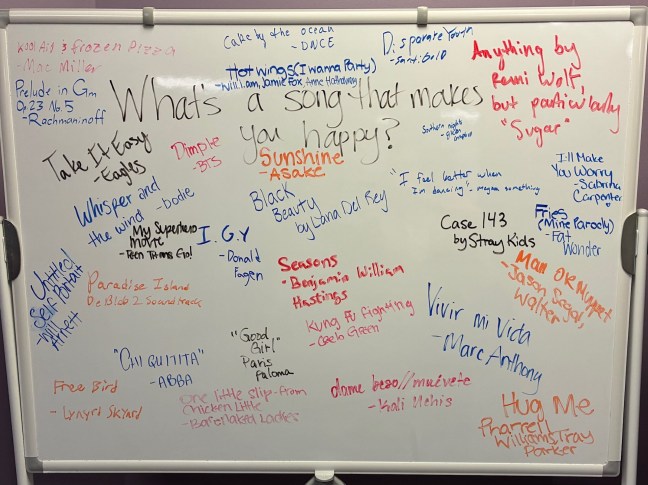 Kool Aid & Frozen Pizza
- Mac Miller
Cake by the ocean
- DNCE
Disparate Youth
- Santigold
Anything by
Remi Wolf,
but particularly
"Sugar"
Hot wings (I wanna Party)
- will.i.am, Jamie Fox, Anne Hathaway
Prelude in Gm
Op. 23 No. 5
- Rachmaninoff
What's a song that makes
you happy?
Take It Easy
- Eagles
Dimple
- BTS
Sunshine
- Asake
Southern nights
"I feel better when
I'm dancing" - megan something
I'll Make
You Worry
- Sabrina
Carpenter
Whisper and
the wind - bodie
Black
Beauty
by Lana Del Rey
My Superhero
Movie
- Teen Titans Go!
I.G.Y
- Donald
Fagen
Case 143
by Stray Kids
Fries
(Mine Parody)
- Fat
Wonder
Untitled
Self Portrait
- Will
Arnett
Paradise Island
De Blob 2 Soundtrack
Seasons
- Benjamin William
Hastings
Man OR Muppet
- Jason Segal,
Walter
Kung Fu Fighting
- CeeLo Green
Vivir mi Vida
- Marc Anthony
"Good
Girl"
Paris
Paloma
"CHIQUITITA"
- ABBA
Free Bird
- Lynyrd Skynrd
One little slip - from
Chicken Little
- Barenaked Ladies
dame beso // muévete
- Kali Uchis
Hug Me
Pharrell
Williams Tray
Parker